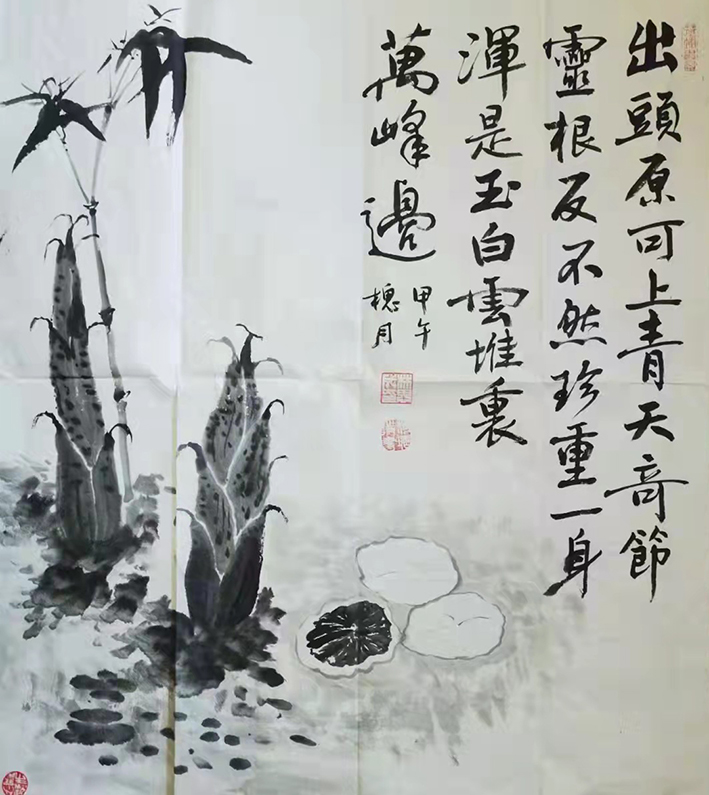 出頭原可上青天奇節
靈根反不然珍重一身
渾是玉白雲堆裏
萬峰邊
甲午
槐月